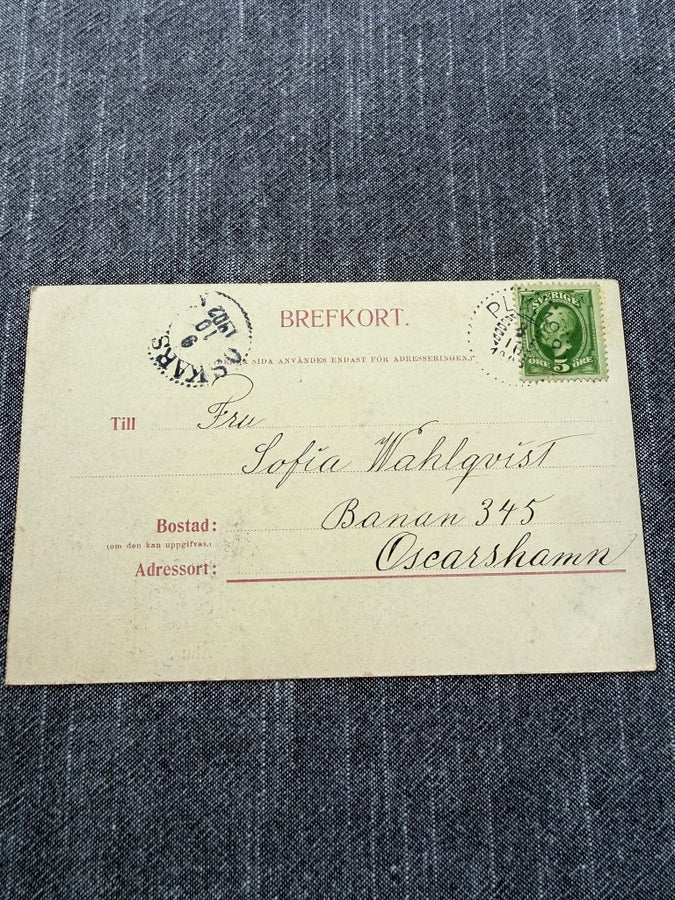 BREFKORT.
(DENNA SIDA ANVÄNDES ENDAST FÖR ADRESSERINGEN.)
SVERIGE
ÖRE 5 ÖRE
OSKARS
10
9
1902
PL
Till Fru
Sofia Wahlqvist
Bostad: Banan 345
(om den kan uppgifvas.)
Adressort: Oscarshamn